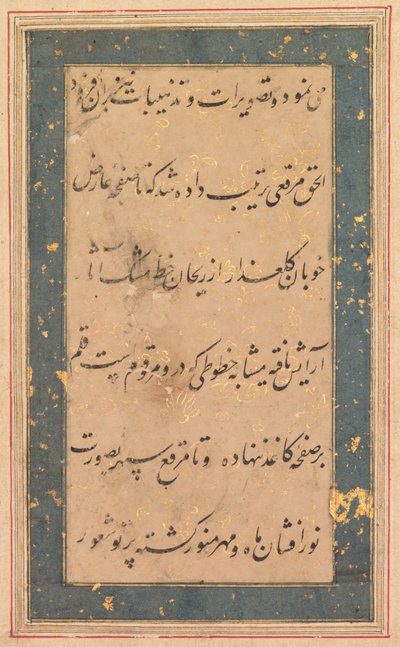 می نمود و تصویرات و تذهیبات نیز بران افزود
الحق مرقعی ترتیب داده شد که تا صفحه عارض
خوبان گلعذار از ریحان خط مشک
آرایش یافته مشابه خطوطی که درو مرقوم است قلم
بر صفحه کاغذ ننهاده و تا مرقع سپهر بصورت
نور افشان ماه و مهر منور گشته پرتو شعور